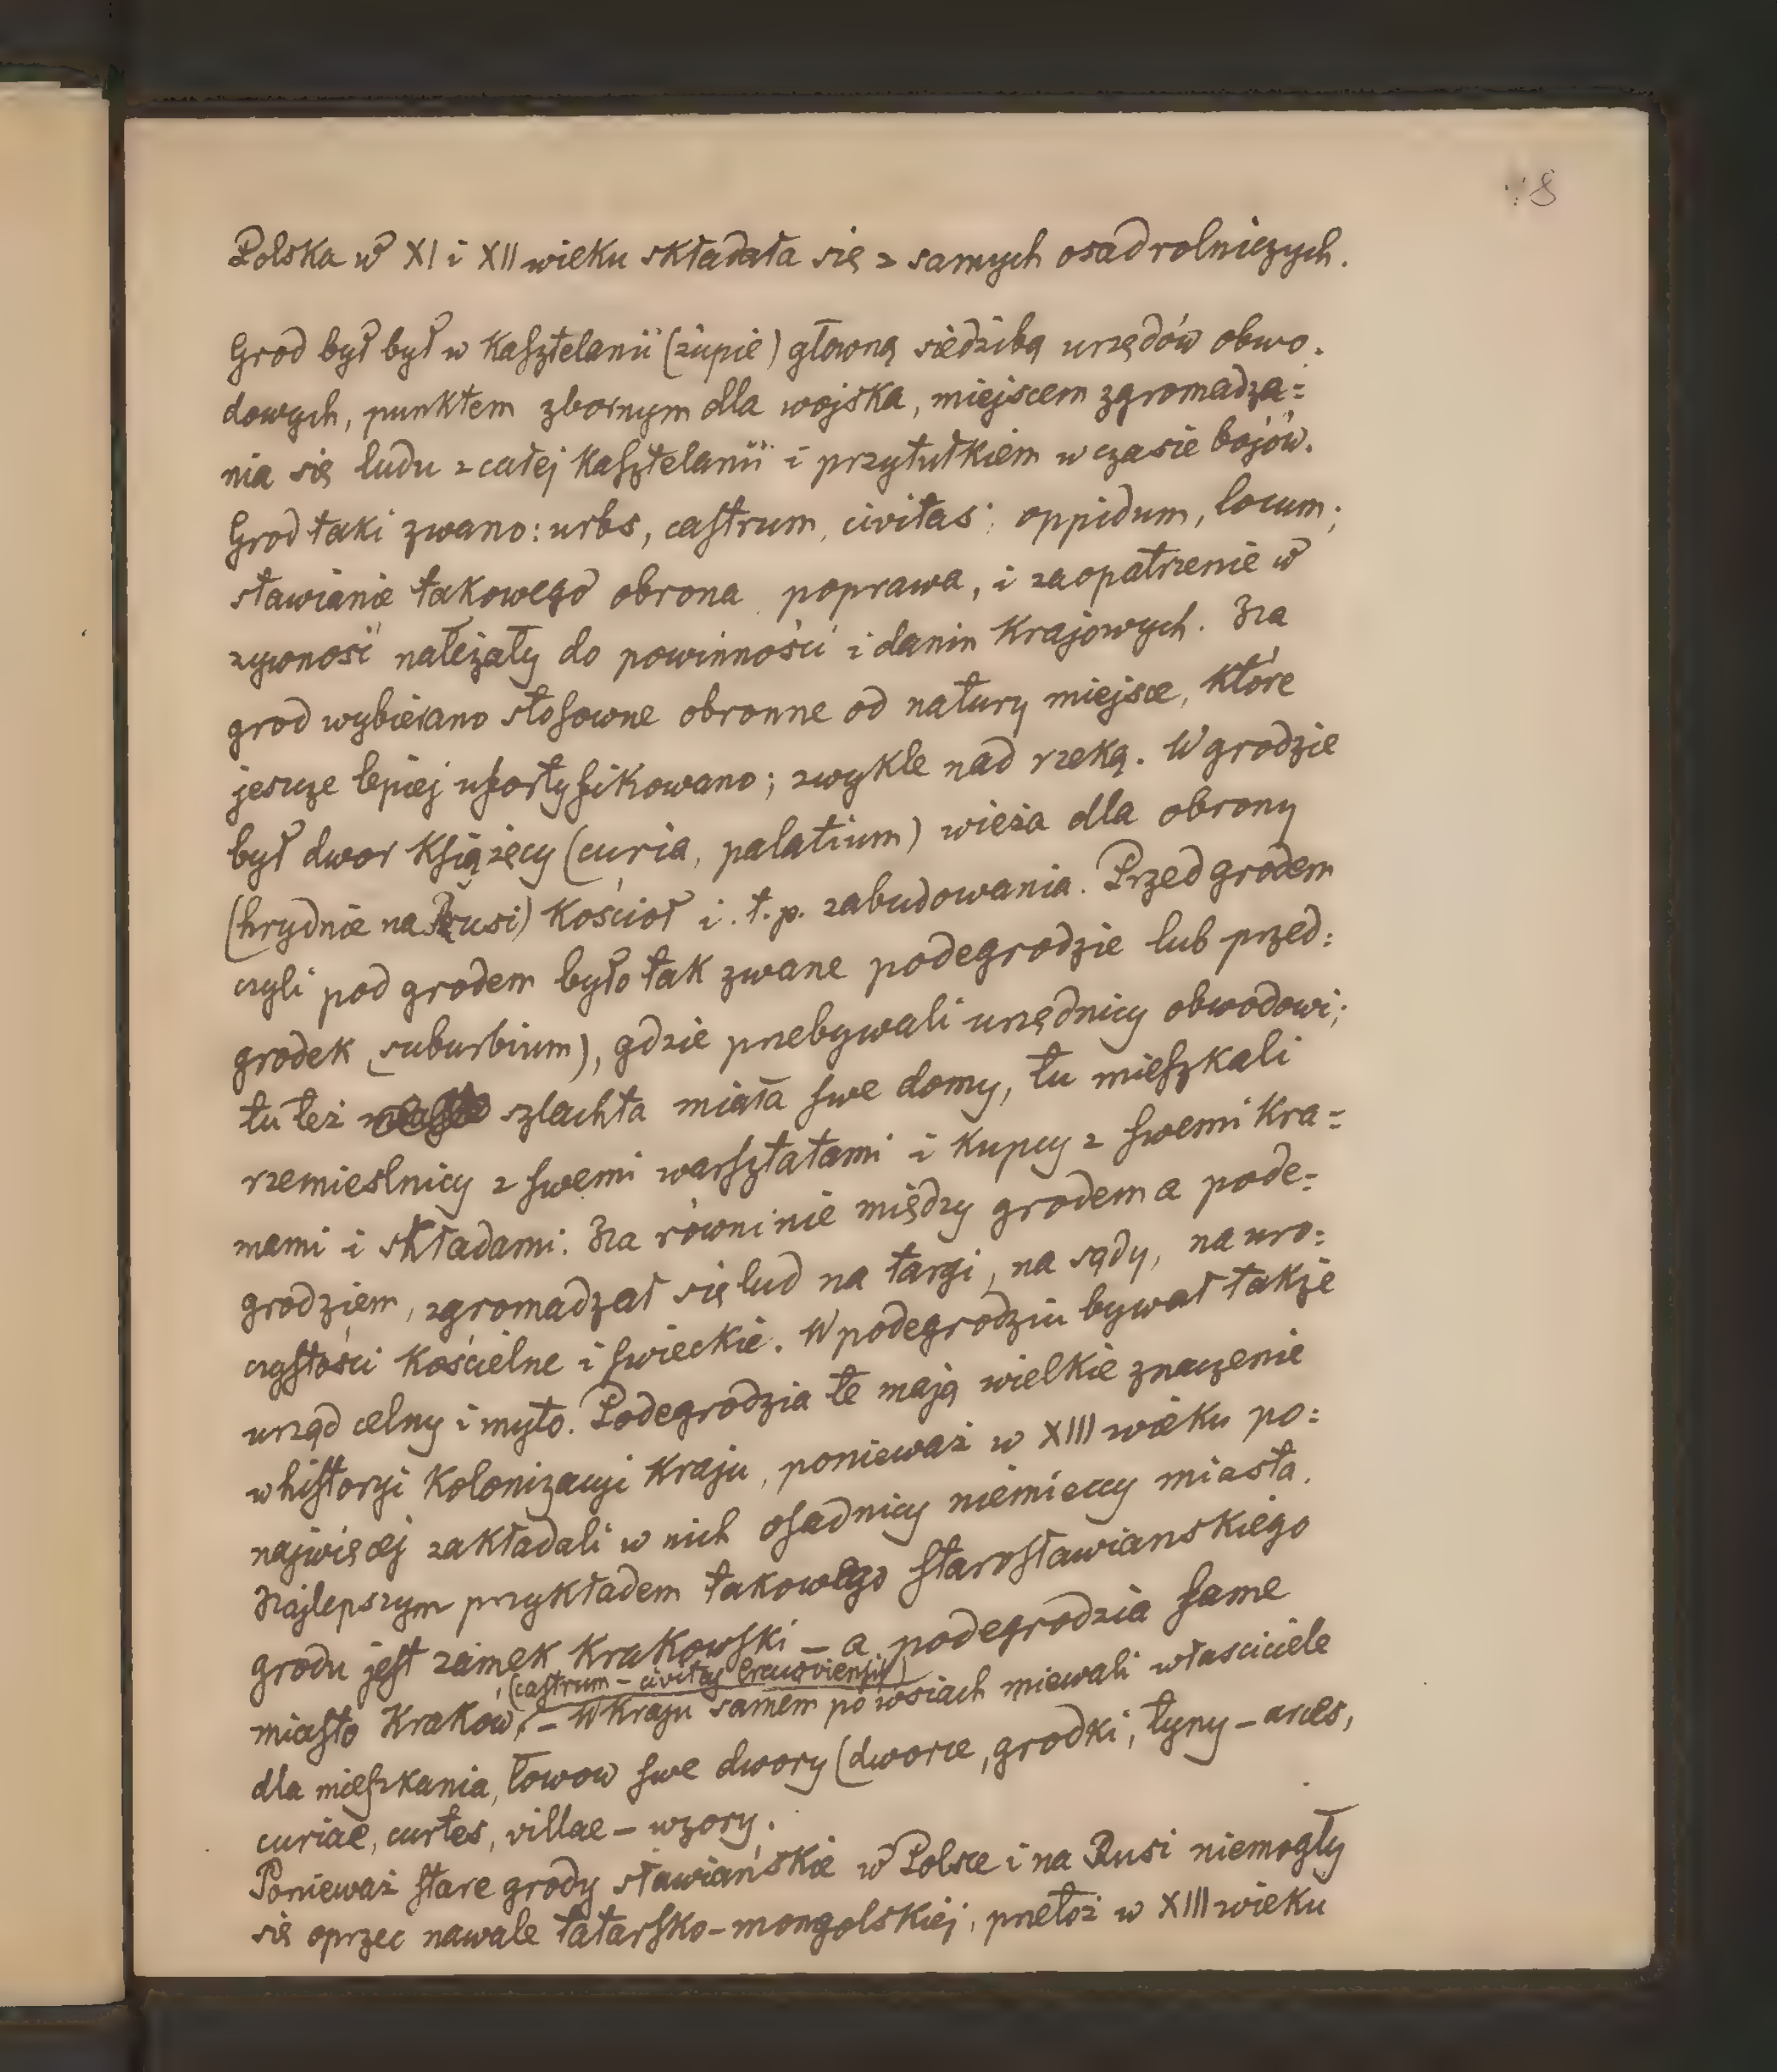 8
Polska w XI i XII wieku składała się z samych osad rolniczych.
Grod był był w Kasztelanii (żupie) głowną siedzibą urzędów obwo.
dowych, punktem zbornym dla wojska, miejscem zgromadza=
nia się ludu z całej Kasztelanii i przytułkiem w czasie bojów.
Grod taki zwano: urbs, castrum, civitas, oppidum, locum;
stawianie takowego obrona poprawa, i zaopatrzenie w
zywność należały do powinności i danin Krajowych. Na
grod wybierano stosowne obronne od natury miejsce, które
jescze lepiej ufortyfikowano; zwykle nad rzeką. W grodzie
był dwor Książęcy (curia, palatium) wieża dla obrony
(hrydnie na Rusi) Kościoł i. t. p. zabudowania. Przed grodem
czyli pod grodem było tak zwane podegrodzie lub przed=
grodek (suburbium), gdzie przebywali urzędnicy obwodowi;
tu też szlachta miała swe domy, tu mieszkali
rzemieslnicy z swemi warsztatami i Kupcy z swemi Kra=
mami i składami. Na równinie między grodem a pode=
grodziem, zgromadzał się lud na targi, na sądy, na uro=
czystości Kościelne i swieckie. W podegrodziu bywał także
urząd celny i myto. Podegrodzia te mają wielkie znaczenie
w historyi Kolonizacyi Kraju, ponieważ w XIII wieku po=
najwięcej zakładali w nich osadnicy niemieccy miasta.
Najlepszym przykładem takowego starosławianskiego
grodu jest zamek Krakowski – a podegrodzia same
(castrum – civitas Cracoviensis)
miasto Krakow. – W Kraju samem po wsiach miewali własciciele
dla mieszkania, łowow swe dwory (dworce, grodki, tyny – arces,
curiae, curtes, villae – wzory.
Ponieważ stare grody sławiańskie w Polsce i na Rusi niemogły
się oprzec nawale tatarsko-mongolskiej, przetoż w XIII wieku